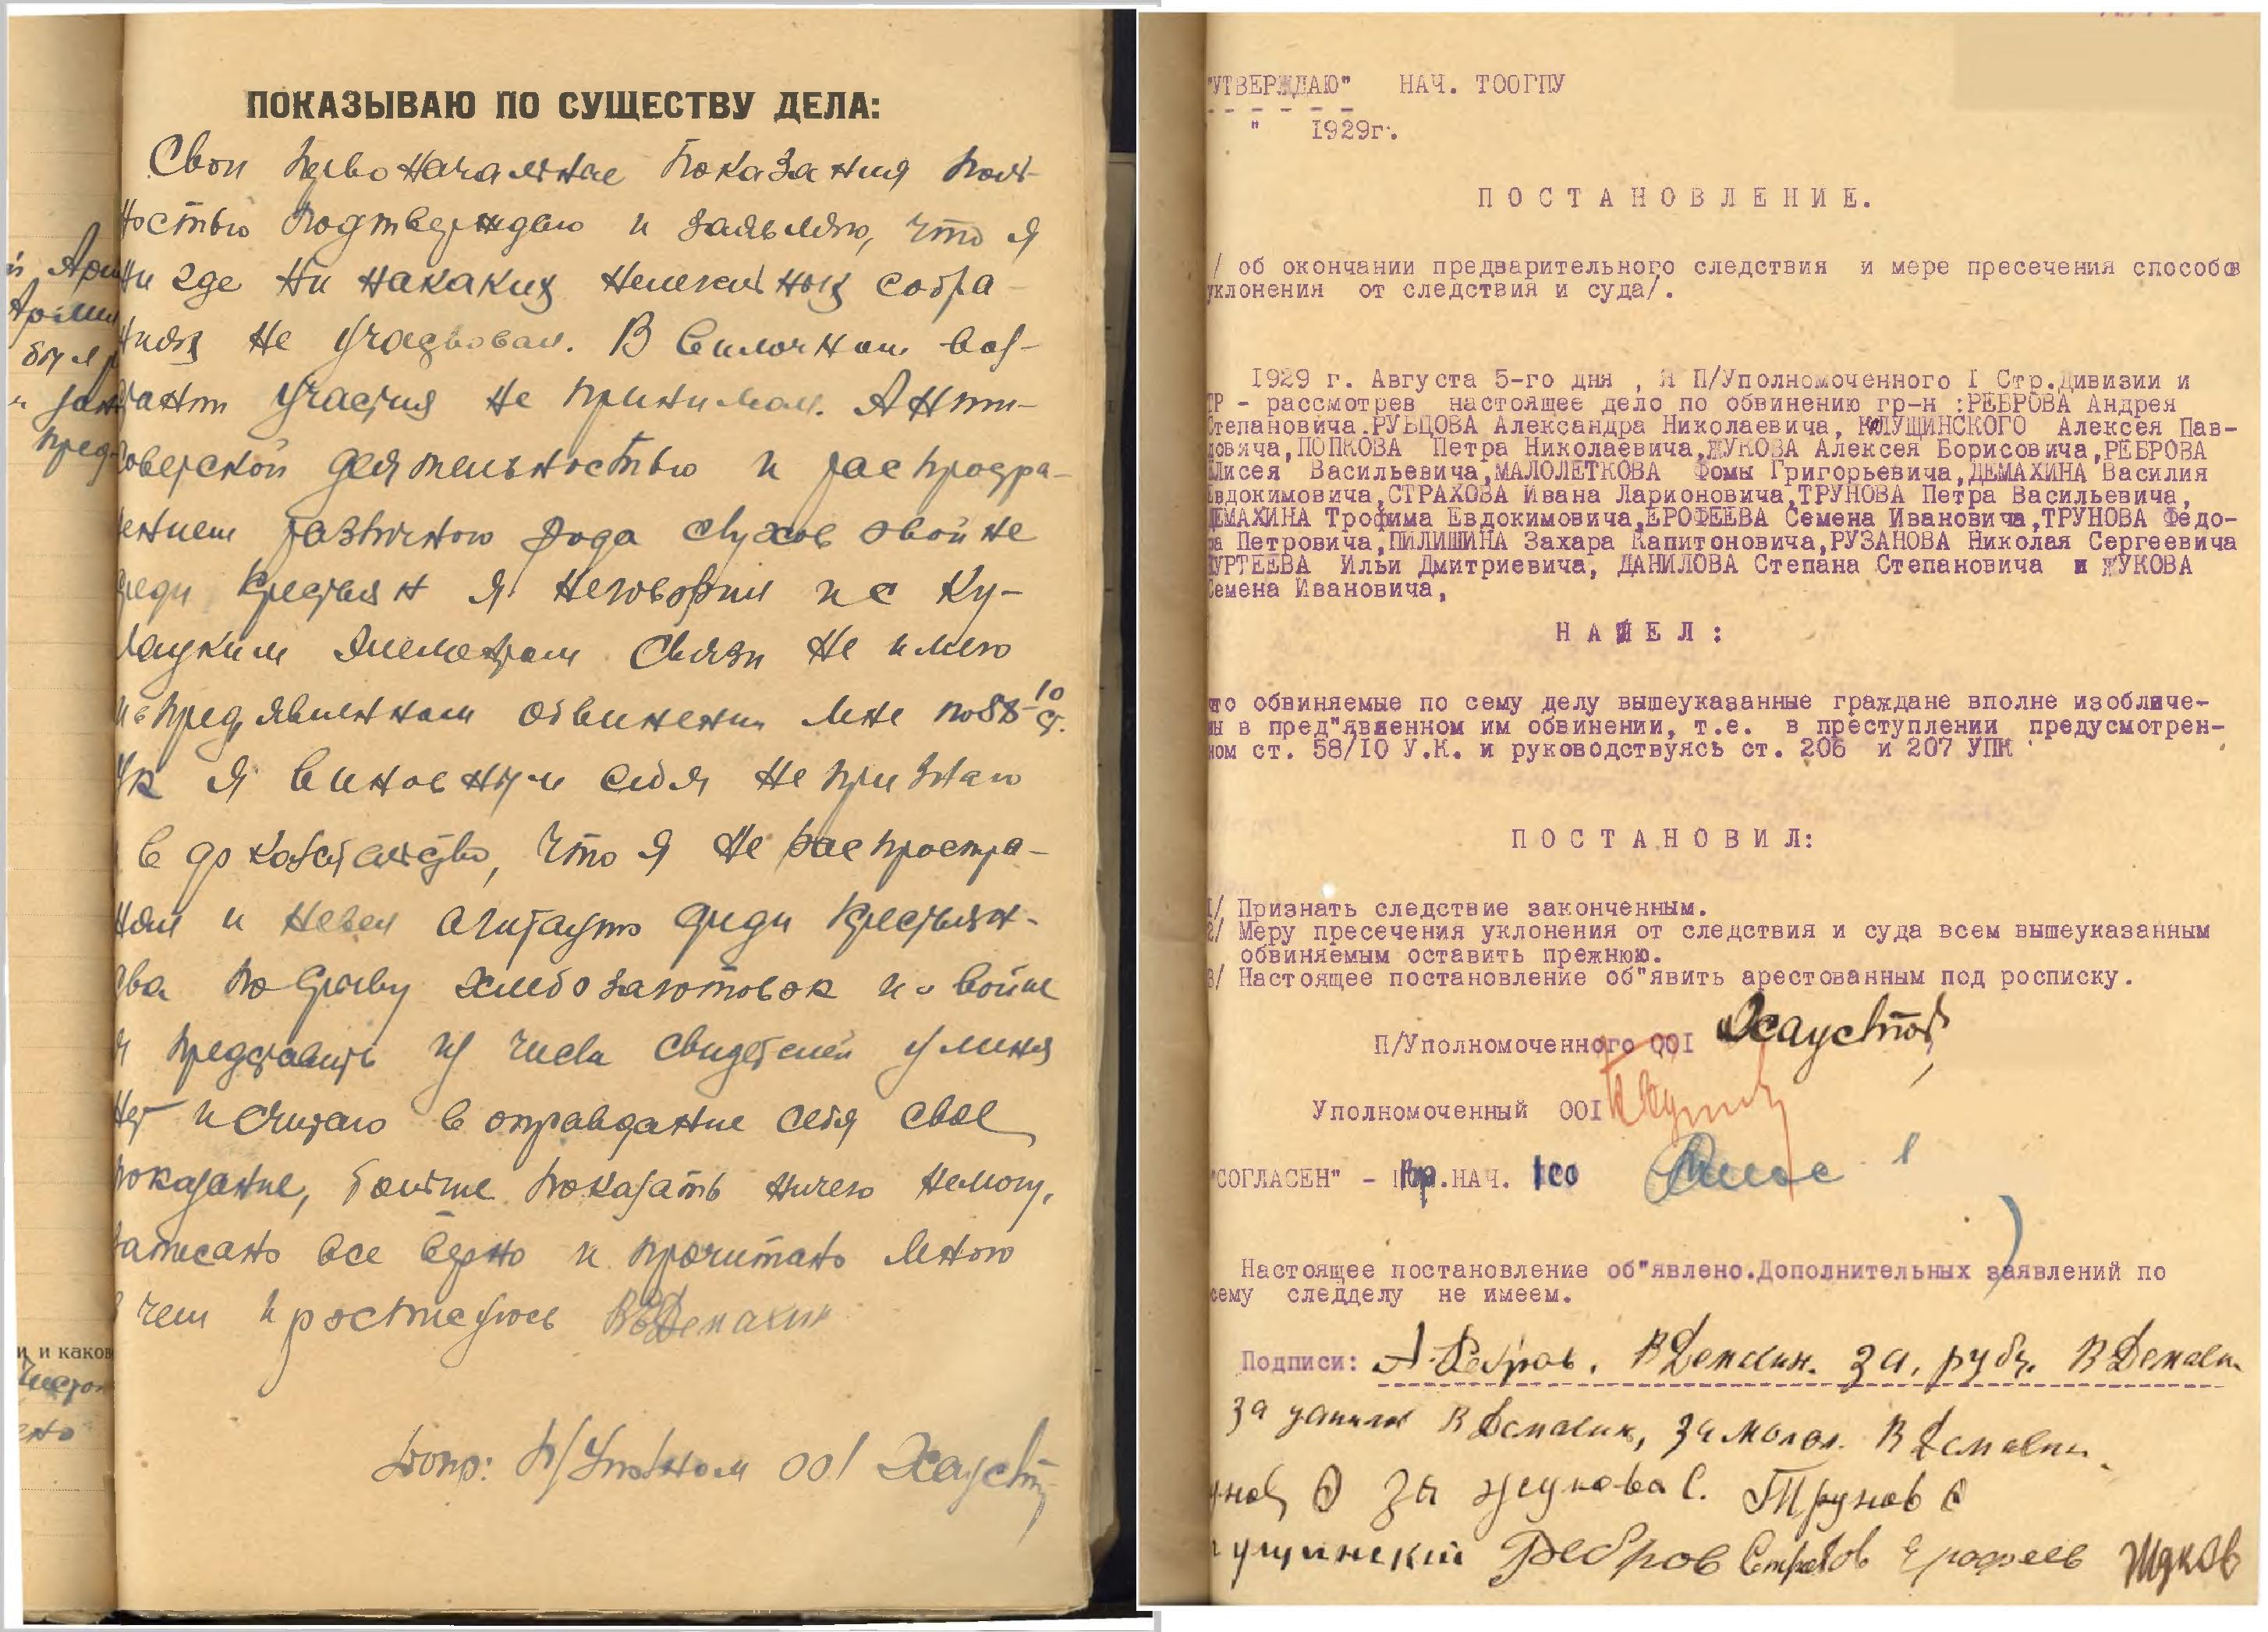 ПОКАЗЫВАЮ ПО СУЩЕСТВУ ДЕЛА:
Свои первоначальные показания пол-
ностью подтверждаю и заявляю, что я
ни где ни на каких нелегальных собра-
ниях не участвовал. В
участия не принимал. Анти-
советской деятельностью и распростра-
нением различного рода слухов о войне
среди крестьян я не говорил и с ку-
лацким элементом связи не имею
и в предявленном обвинении мне по 58-10 ст.
УК я виновным себя не признаю
в доказательство, что я не распростра-
нял и не вел агитацию среди крестьян-
ства по срыву хлебозаготовок и о войне
я представить из числа свидетелей у меня
нет и считаю в оправдание себя свое
показание, больше показать ничего не могу,
записано все верно и прочитано мною
в чем и росписуюсь В Демахин
Допр: П/Уполном ООI Хаустов
и каков
"УТВЕРЖДАЮ" НАЧ. ТООГПУ
" 1929г.
ПОСТАНОВЛЕНИЕ.
/ об окончании предварительного следствия и мере пресечения способов
уклонения от следствия и суда/.
1929 г. Августа 5-го дня , Я П/Уполномоченного I Стр.Дивизии и
ТР - рассмотрев настоящее дело по обвинению гр-н :РЕБРОВА Андрея
Степановича.РУБЦОВА Александра Николаевича, КЛУЩИНСКОГО Алексея Пав-
ловича,ПОПКОВА Петра Николаевича,ЖУКОВА Алексея Борисовича,РЕБРОВА
Елисея Васильевича,МАЛОЛЕТКОВА Фомы Григорьевича,ДЕМАХИНА Василия
Евдокимовича,СТРАХОВА Ивана Ларионовича,ТРУНОВА Петра Васильевича,
ДЕМАХИНА Трофима Евдокимовича,ЕРОФЕЕВА Семена Ивановича,ТРУНОВА Федо-
ра Петровича,ПИЛИШИНА Захара Капитоновича,РУЗАНОВА Николая Сергеевича
УРТЕЕВА Ильи Дмитриевича, ДАНИЛОВА Степана Степановича и ЖУКОВА
Семена Ивановича,
НАШЕЛ:
что обвиняемые по сему делу вышеуказанные граждане вполне изобличе-
ны в пред"явленном им обвинении, т.е. в преступлении предусмотрен-
ном ст. 58/IO У.К. и руководствуясь ст. 206 и 207 УПК
ПОСТАНОВИЛ:
1/ Признать следствие законченным.
2/ Меру пресечения уклонения от следствия и суда всем вышеуказанным
обвиняемым оставить прежнюю.
3/ Настоящее постановление об"явить арестованным под росписку.
П/Уполномоченного ООI Хаустов
Уполномоченный ООI
"СОГЛАСЕН" - Вр.НАЧ. ICO
Настоящее постановление об"явлено.Дополнительных заявлений по
сему следделу не имеем.
Подписи: А. Ребров. В Демахин. за, рубц. В Демахин
за данилов В Демахин, за малол. В Демахин.
за жукова С. Трунов
ущинский Ребров Страхов Ерофеев Жуков